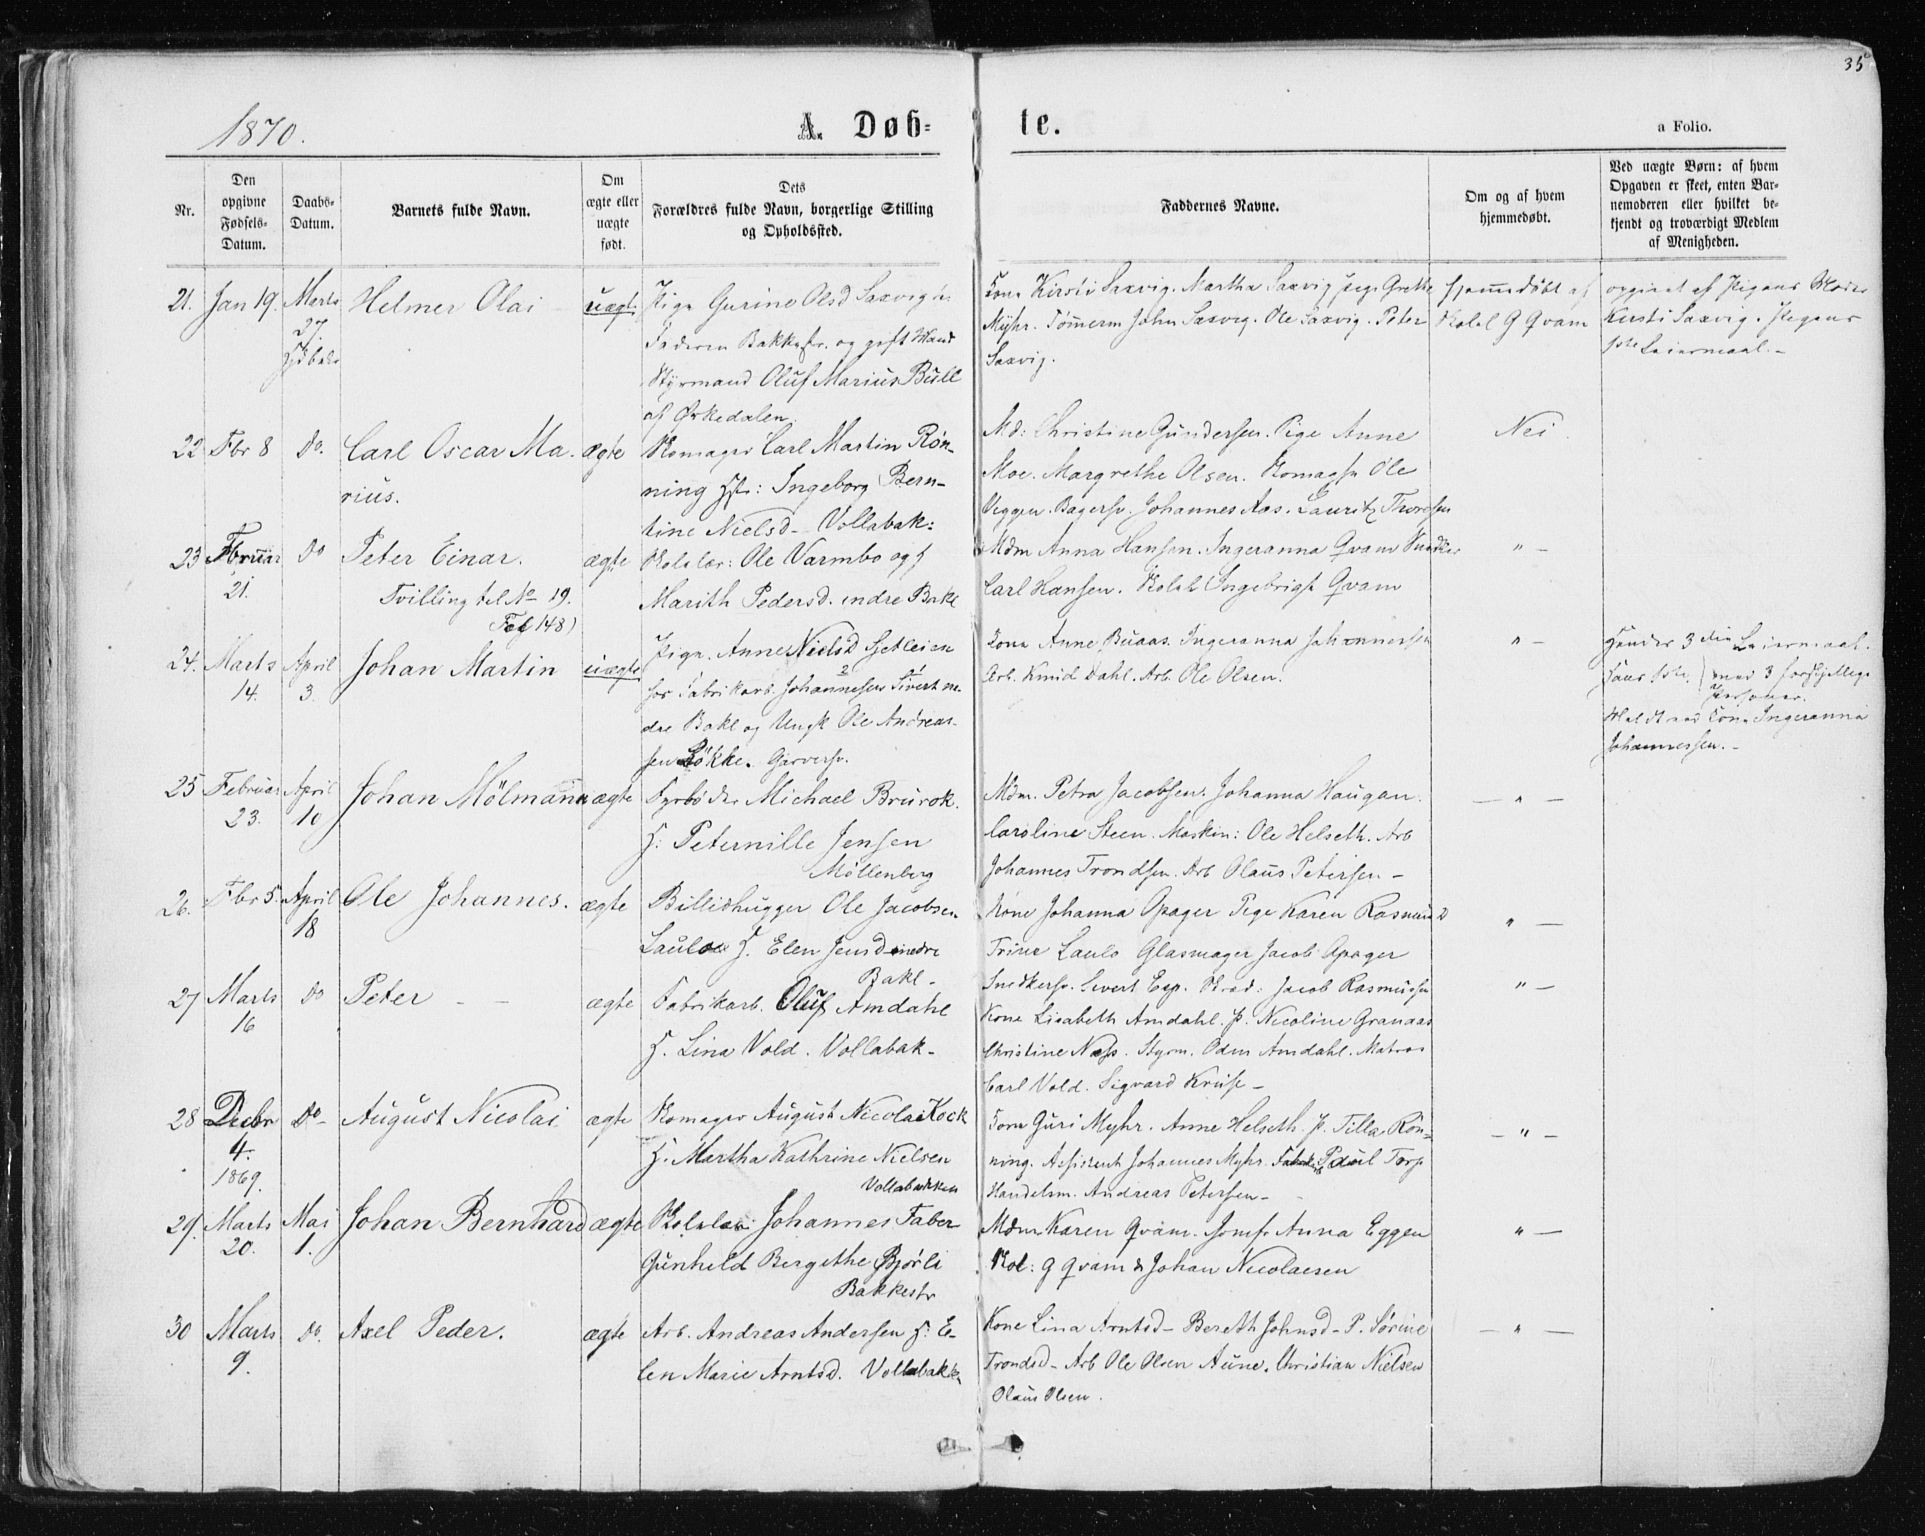 35
1870.
A. Døb-
te.
a Folio.
Nr.
Den opgivne Fødsels-Datum.
Daabs-Datum.
Barnets fulde Navn.
Om ægte eller uægte født.
Dets Forældres fulde Navn, borgerlige Stilling og Opholdssted.
Faddernes Navne.
Om og af hvem hjemmedøbt.
Ved uægte Børn: af hvem Opgaven er skeet, enten Barnemoderen eller hvilket bekjendt og troværdigt Medlem af Menigheden.
21. Jan 19. Marts 27 Helmer Olai uægte
Pige Gurine Olsd Saxvig
Faderen Bakkestr. og gift Mand
Styrmand Oluf Marius Bull
af Ørkedalen.
Kone Kirsti Saxvig. Martha Saxvig Pige Grethe
Myhr. Tømerm John Saxvig. Ole Saxvig. Peter
Saxvig.
hjemmedøbt af
Skolel G Qvam
opgivet af Pigens Moder
Kirsti Saxvig. Pigens
1ste Leiermaal.
22 Fbr 8 Do. Carl Oscar Ma-
rius.
ægte
Skomager Carl Martin Røn-
ning Hstr: Ingeborg Bern-
tine Nielsd Vollabak:
Md: Christine Gundersen. Pige Anne
Moe. Margrethe Olsen. Skomagsv Ole
Viggen. Bagersv. Johannes Aas. Lauritz Thoresen
Nei
23 Februar 21. Do Peter Einar.
Tvilling til No 19.
148)
ægte
Skolelær: Ole Varmbo og H
Marith Pedersd. indre Bakl
Mdm Anna Hansen. Ingeranna Qvam Snedker
Carl Hansen. Skolel Ingebrigt Qvam
" -
24. Marts 14. April 3. Johan Martin uægte
Pige. Anne Nielsd
for Fabrikarb. Johannesen Sivert in-
dre Bakl og Ungk Ole Andreas-
sen Løkke. Garversv.
Kone Anne Buaas. Ingeranna Johannessen
Arb. Knud Dahl. Arb. Ole Olsen.
" -
Hendes 3die Leiermaal.
Hans 1ste. med 3 forskjellige
Personer.
Meldt ved Kone Ingeranna
Johannessen. -
25 Februar 23. April 10 Johan Mölmann ægte
Fyrbøder Michael Brurok.
H: Peternille Jensen
Möllenberg
Mdm. Petra Jacobsen. Johanna Haugan.
Caroline Steen. Maskin: Ole Helseth. Arb
Johannes Trondsen. Arb Olaus Petersen -
- " -
26. Fbr 5. April 18 Ole Johannes. ægte
Billedhugger Ole Jacobsen
Laulo H. Elen Jensd indre
Bakl -
Kone Johanna Opager Pige Karen Rasmusd
Trine Laulo Glasmager Jacob Opager
Snedkersv. Sivert Esp. Skred: Jacob Rasmussen
" -
27 Marts 16 Do Peter - - ægte
Fabrikarb. Oluf Amdahl
H. Lina Vold. Vollabak -
Kone Lisabeth Amdahl. P. Nicoline Granaas
Christine Næss. Styrm. Odin Amdahl. Matros
Carl Vold. Sigvard Kruse -
" -
28 Decbr 4. 1869. Do - August Nicolai ægte
Skomager August Nicolai Kock
H. Martha Kathrine Nielsen
Vollabakken
Kone Guri Myhr. Anne Helseth. P. Tilla Røn-
ning. Assistent Johannes Myhr. Paul Torp
Handelsm. Andreas Petersen -
- " -
29. Marts 20. Mai 1. Johan Bernhard ægte
Skolelær: Johannes Faber
Gunhild Bergithe Bjørli
Bakkestr
Mdm Karen Qvam. Jomfr Anna Eggen
Skol: G Qvam & Johan Nicolaisen
" -
30 Marts 9. Do. Axel Peder. ægte
Arb. Andreas Andersen H: E-
len Marie Arntsd. Vollabakken
Kone Lina Arntsd - Bereth Johnsd - P. Sørine
Trondsd - Arb Ole Olsen Aune. Christian Nielsen
Olaus Olsen.
- " -